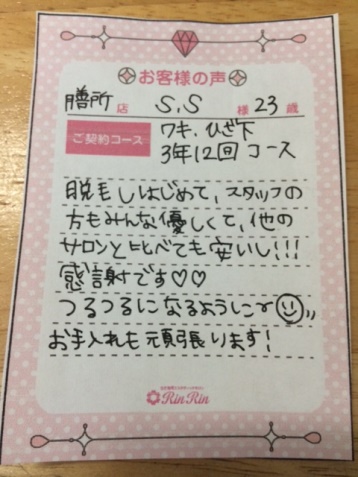 お客様の声
膳所店 S.S 様 23歳
ご契約コース
ワキ、ひざ下
3年12回 コース
脱毛しはじめて、スタッフの
方もみんな優しくて、他の
サロンと比べても安いし!!!
感謝です♡♡
つるつるになるようにー
お手入れも頑張ります!
RinRin